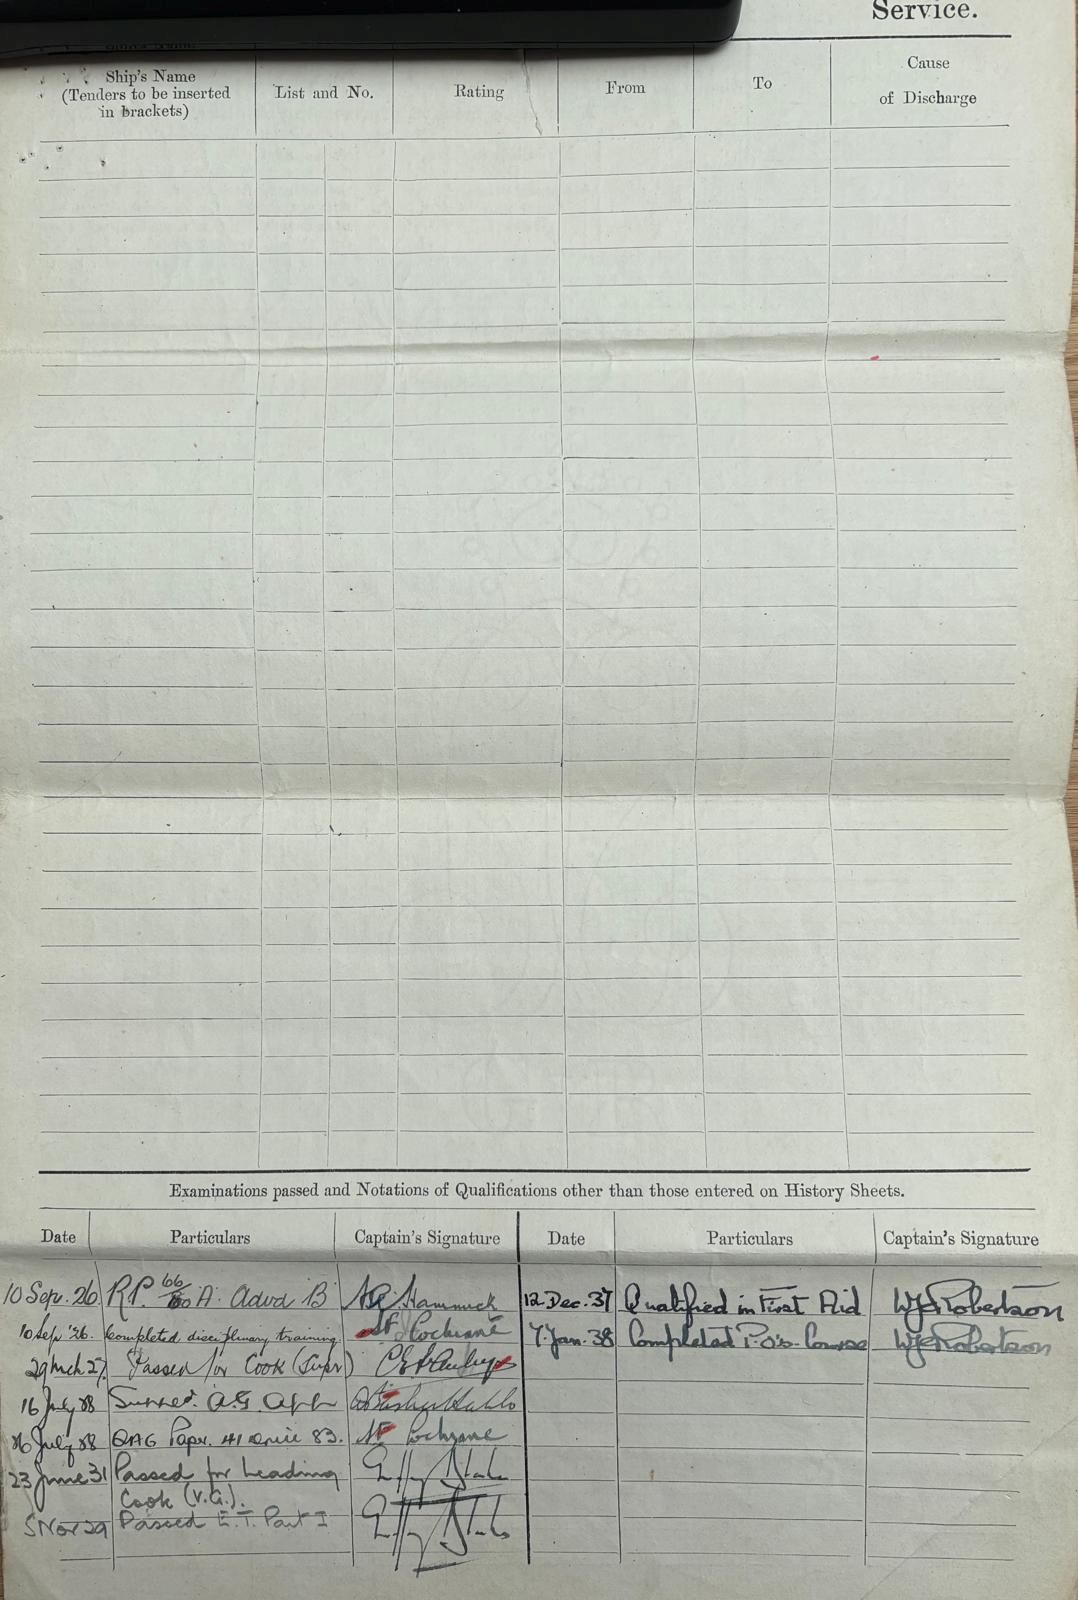 Service.
Ship's Name
(Tenders to be inserted
in brackets)
List and No.
Rating
From
To
Cause
of Discharge
Examinations passed and Notations of Qualifications other than those entered on History Sheets.
Date
Particulars
Captain's Signature
Date
Particulars
Captain's Signature
10 Sep. 26
10 Sep '26. Completed disciplinary training. Cochrane
29 Mch 27. Passed for Cook (Supr)
16 July 28
26 July 28 Cochrane
23 June 31 Passed for Leading
Cook (V.G.).
5 Nov 29 Passed E.T. Part I
12. Dec. 37 Qualified in First Aid WJRobertson
7. Jan. 38 Completed P.O's. Course WJRobertson